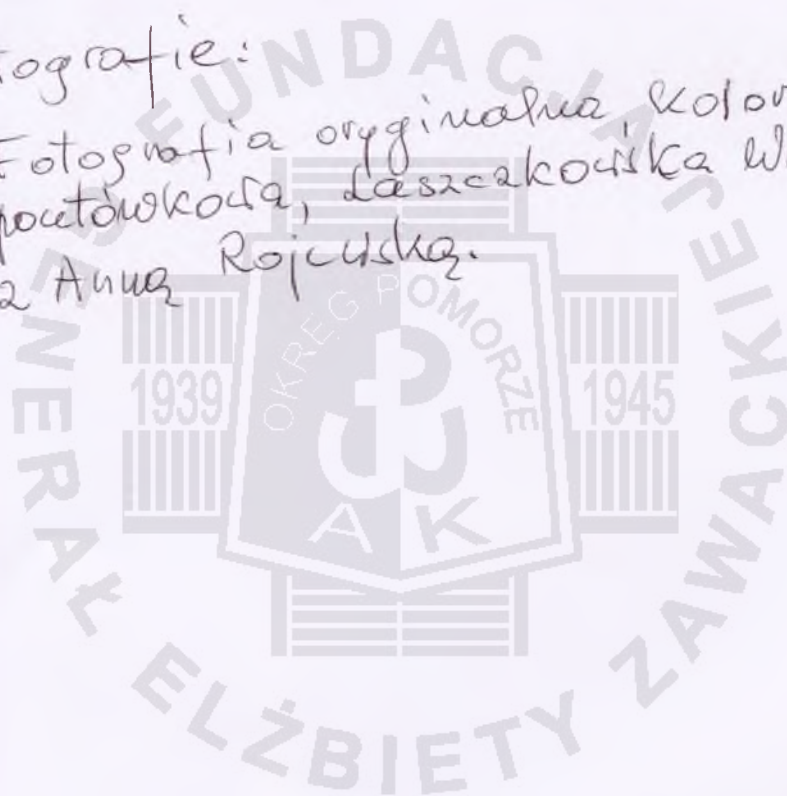 ografie:
Fotografia oryginalna, kolor
pocztówkowa, Łaszczakowska W
z Anną Rojewską.
FUNDACJA GENERAŁ ELŻBIETY ZAWACKIEJ
OKRĘG POMORZE
1939
1945
AK